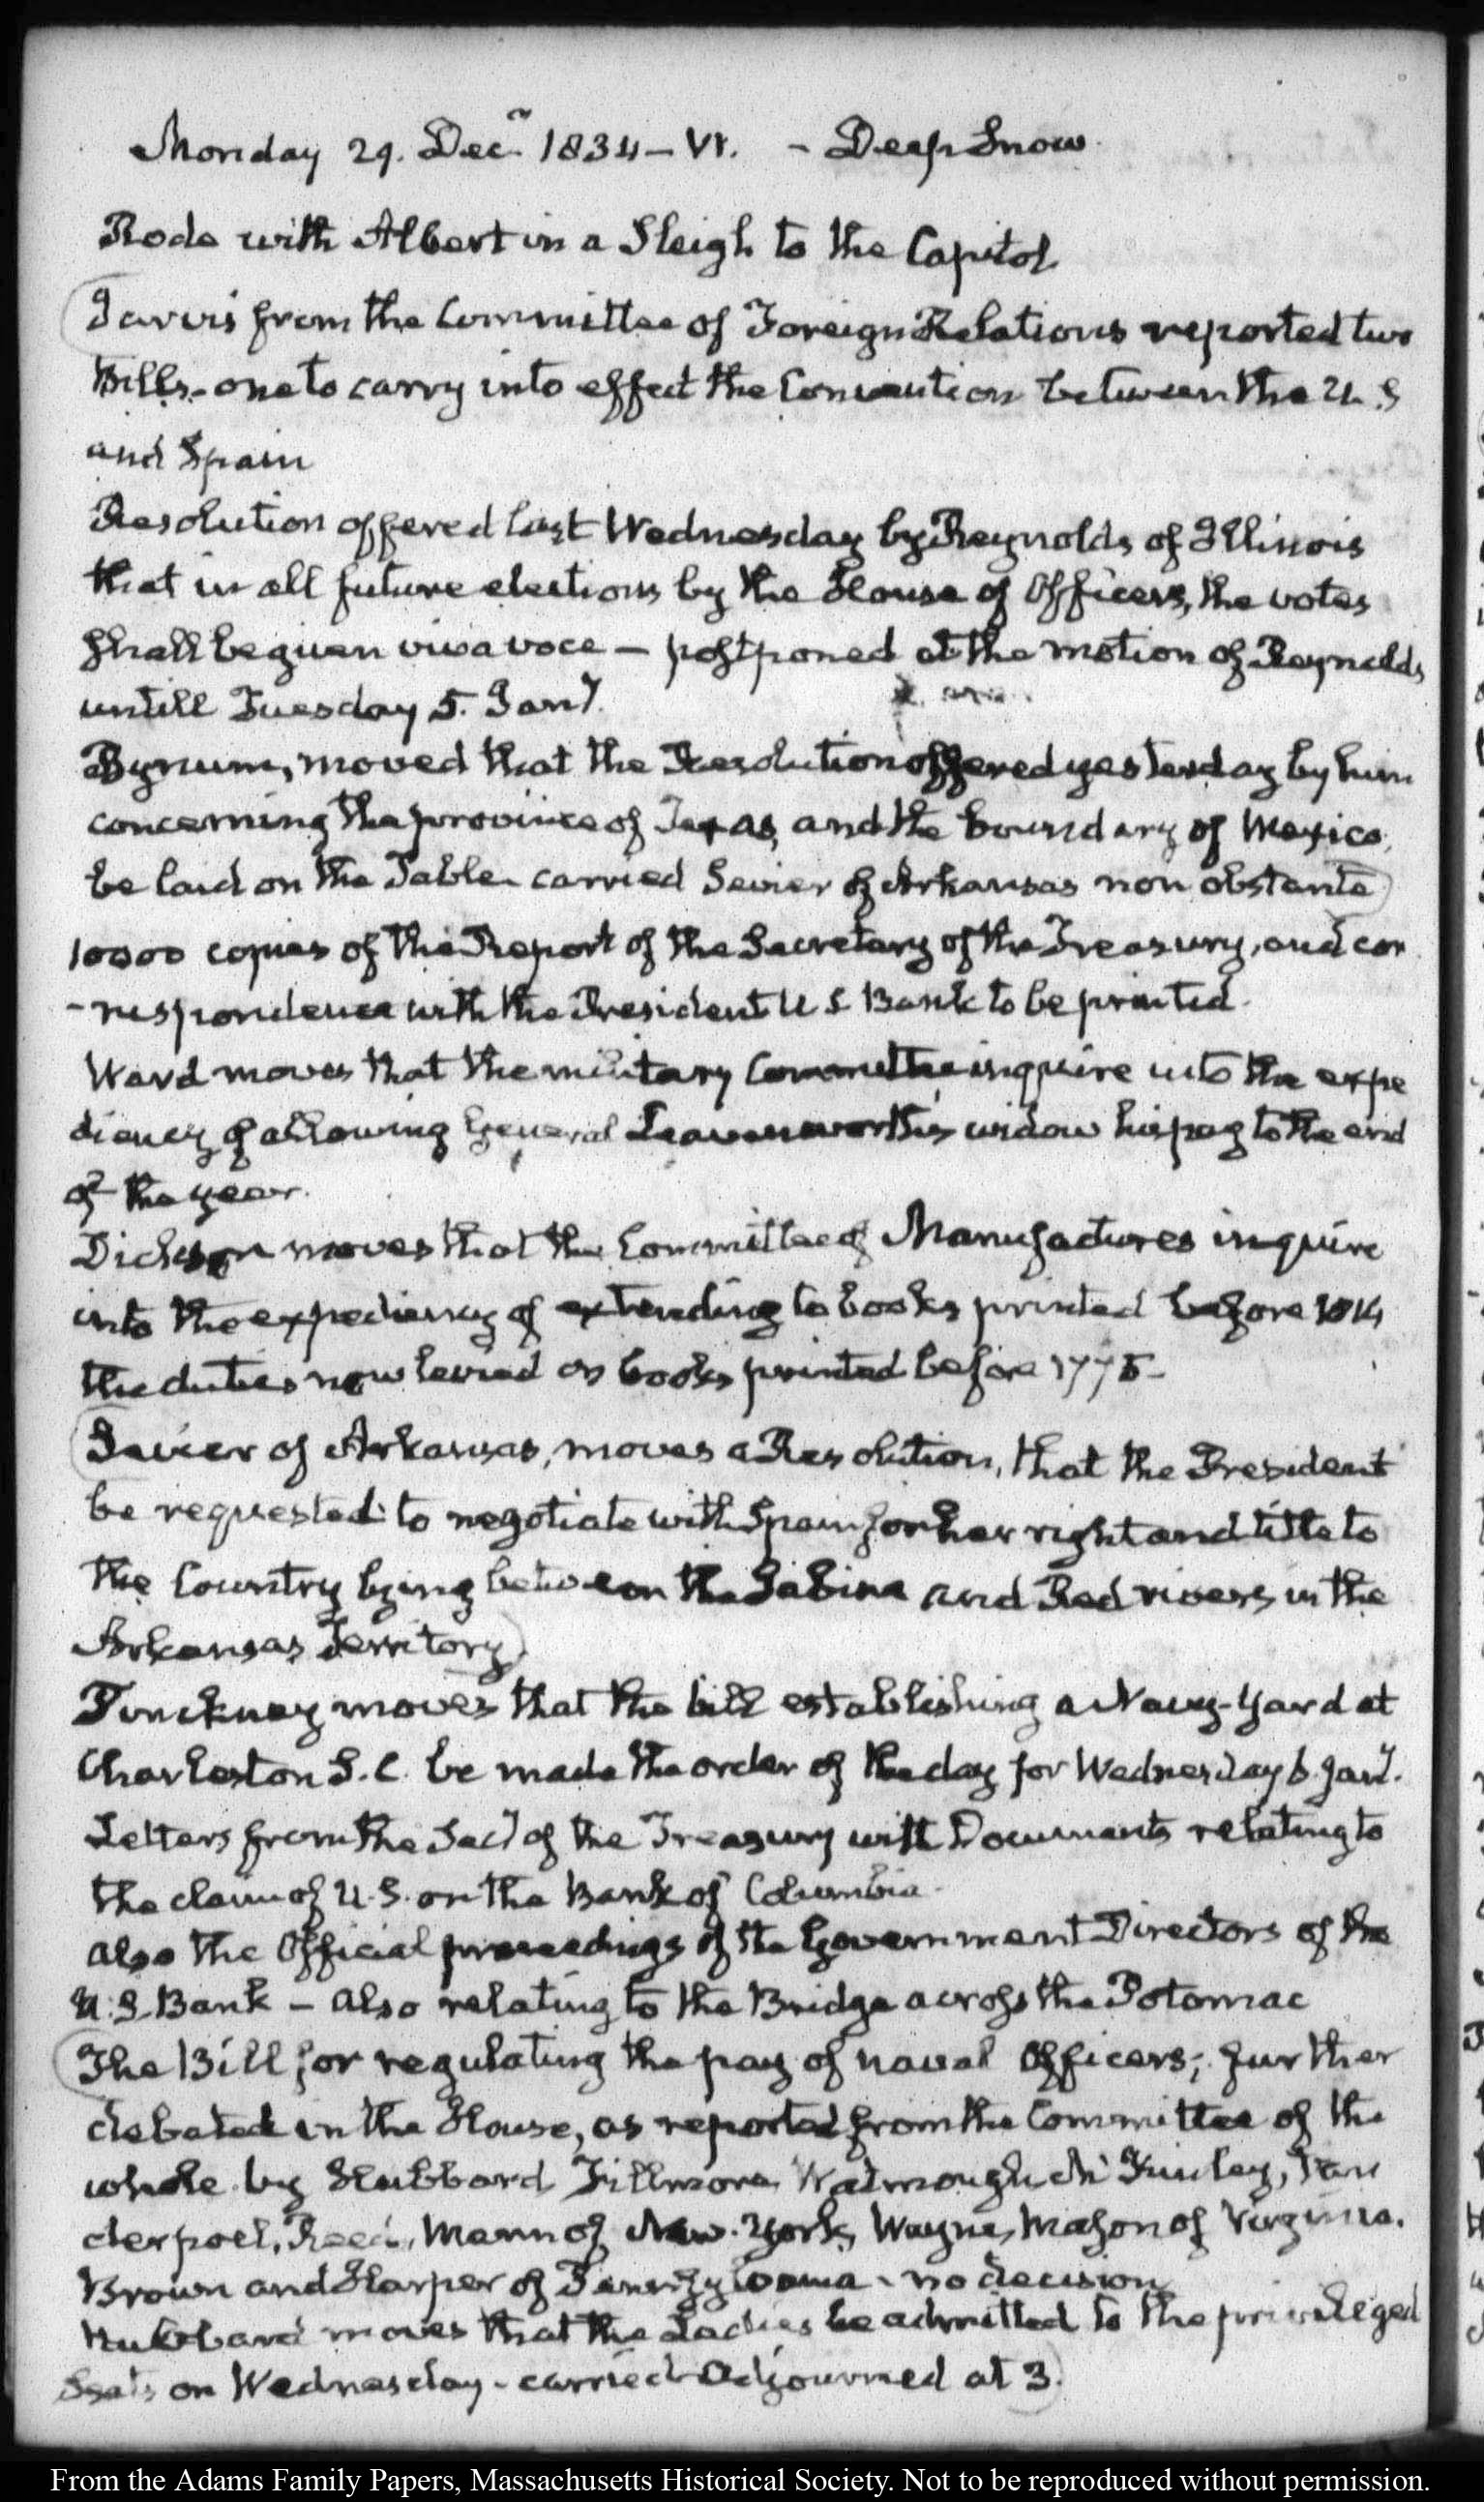 Monday 29. Decr. 1834 – VI. – Deep Snow.
Rode with Albert in a Sleigh to the Capitol
Jarvis from the Committee of Foreign Relations reported two
Bills – one to carry into effect the Convention between the U.S
and Spain
Resolution offered last Wednesday by Reynolds of Illinois
that in all future elections by the House of Officers, the votes
shall be given viva voce – postponed at the motion of Reynolds
untill Tuesday 5. Jany.
Bynum, moved that the Resolution offered yesterday by him
concerning the province of Texas, and the boundary of Mexico,
be laid on the Table – carried Sevier of Arkansas non obstante
10000 copies of the Report of the Secretary of the Treasury, and cor
-respondence with the President U S Bank to be printed.
Ward moves that the military Committee inquire into the expe
diency of allowing General Leavenworth's widow his pay to the end
of the year.
Dickson moves that the Committee of Manufactures inquire
into the expediency of extending to books printed before 1814
the duties now levied on books printed before 1775 –
Sevier of Arkansas, moves a Resolution, that the President
be requested to negotiate with Spain for her right and title to
the Country lying between the Sabine and Red rivers in the
Arkansas Territory
Pinckney moves that the bill establishing a Navy-Yard at
Charleston S.C. be made the order of the day for Wednesday 6. Jany.
Letters from the Secy of the Treasury with Documents relating to
the claim of U.S. on the Bank of Columbia.
also the Official proceedings of the Government Directors of the
U.S. Bank – also relating to the Bridge across the Potomac
The Bill for regulating the pay of naval Officers, further
debated in the House, as reported from the Committee of the
whole by Hubbard Fillmore, Watmough McKinley, Van
derpoel, Reed, Mann of New-York, Wayne, Mason of Virginia.
Brown and Harper of Pennsylvania – no decision
Hubbard moves that the Ladies be admitted to the privileged
Seats on Wednesday – carried Adjourned at 3.
From the Adams Family Papers, Massachusetts Historical Society. Not to be reproduced without permission.